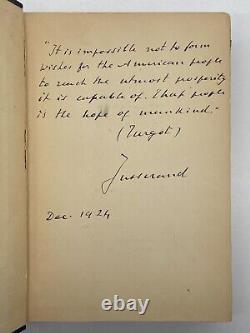 "It is impossible not to form
wishes for the American people
to reach the utmost prosperity
it is capable of. That people
is the hope of mankind."
(Turgot)
Jusserand
Dec. 1924